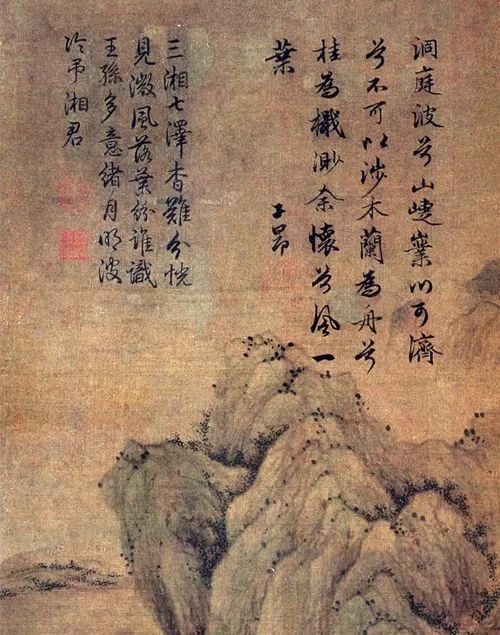 洞庭波兮山崨嶪川可濟
兮不可以涉木蘭為舟兮
桂為檝渺余懷兮風一
葉
子昂
三湘七澤杳難分恍
見微風落葉紛誰識
王孫多意緒月明波
冷弔湘君